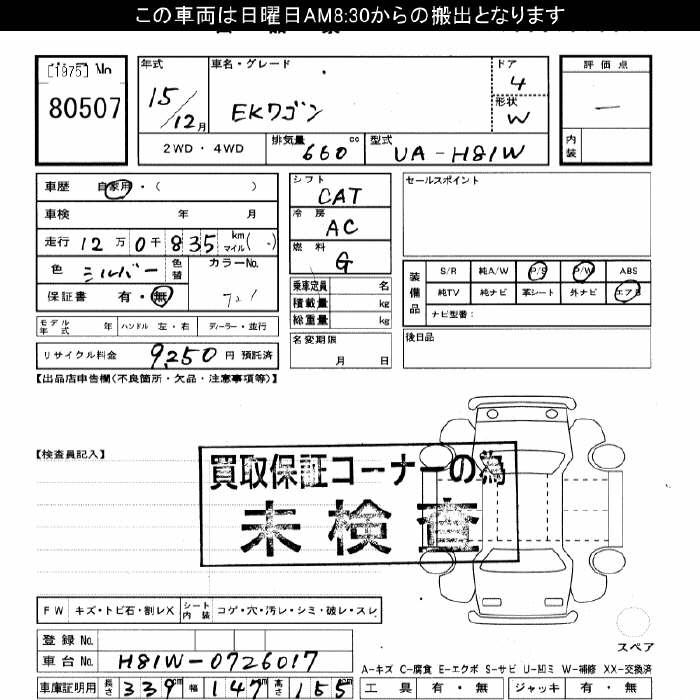 この車両は日曜日AM8:30からの搬出となります
[1975] No
80507
年式 車名・グレード ドア 評価点
15/12月 EKワゴン 4 ー
形状 W
2WD・4WD 排気量 660 cc 型式 UA-H81W 内装
車歴 自家用・( )
車検 年 月
走行 12万0千835 km マイル( )
色 シルバー 色替 カラーNo.
保証書 有・無
モデル年式 年 ハンドル 左・右 ディーラー・並行
リサイクル料金 9,250 円 預託済
シフト CAT
冷房 AC
燃料 G
乗車定員 名
積載量 kg
総重量 kg
名変期限
月 日
セールスポイント
装備品 S/R 純A/W P/S P/W ABS
純TV 純ナビ 革シート 外ナビ エアB
ナビ型番:
後日品
【出品店申告欄(不良箇所・欠品・注意事項等)】
【検査員記入】
買取保証コーナーの為
未検査
FW キズ・トビ石・割レX シート内装 コゲ・穴・汚レ・シミ・破レ・スレ
スペア
登録No.
車台No. H81W-0726017
A-キズ C-腐食 E-エクボ S-サビ U-凹ミ W-補修 XX-交換済
車庫証明用 長さ 339 cm 幅 147 cm 高さ 155 cm 工具 有・無 ジャッキ 有・無